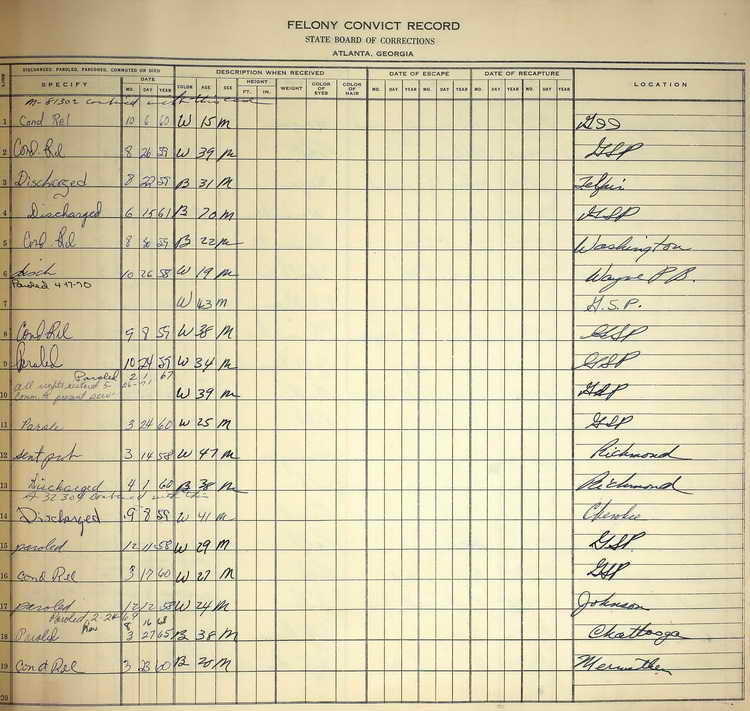 FELONY CONVICT RECORD
STATE BOARD OF CORRECTIONS
ATLANTA, GEORGIA
LINE DISCHARGED, PAROLED, PARDONED, COMMUTED OR DIED DESCRIPTION WHEN RECEIVED DATE OF ESCAPE DATE OF RECAPTURE LOCATION
SPECIFY DATE MO. DAY YEAR COLOR AGE SEX HEIGHT FT. IN. WEIGHT COLOR OF EYES COLOR OF HAIR MO. DAY YEAR MO. DAY YEAR MO. DAY YEAR MO. DAY YEAR
M-81302 combined with this
1 Cond Rel 10 6 60 W 15 M
2 Cond. Rel 8 26 59 W 39 M GSP
3 Discharged 8 22 59 B 31 M
4 Discharged 6 15 61 B 70 M GSP
5 Cond. Rel 8 59 B 22 M Washington
6 disch 10 26 58 W 19 M Wayne P.B.
Paroled 4-17-70
7 W 43 M G.S.P.
8 Cond Rel 9 8 59 W 38 M GSP
9 Paroled 10 24 59 W 34 M GSP
Paroled 2 1 67
all rights restored
10 Comm. to present serv W 39 M GSP
11 Parole 3 24 60 W 25 M GSP
12 Sent 3 14 58 W 47 M Richmond
13 Discharged 4 1 60 B 38 M Richmond
A 32304 combined with this
14 Discharged 9 8 59 W 41 M Cherokee
15 paroled 12 11 58 W 29 M GSP
16 Cond Rel 3 17 60 W 27 M GSP
17 paroled 12 12 58 W 24 M Johnson
Paroled 2-24-69
Rev 8 16 68
18 Paroled 3 27 65 B 38 M Chattooga
19 Cond Rel 3 23 60 B 20 M
20